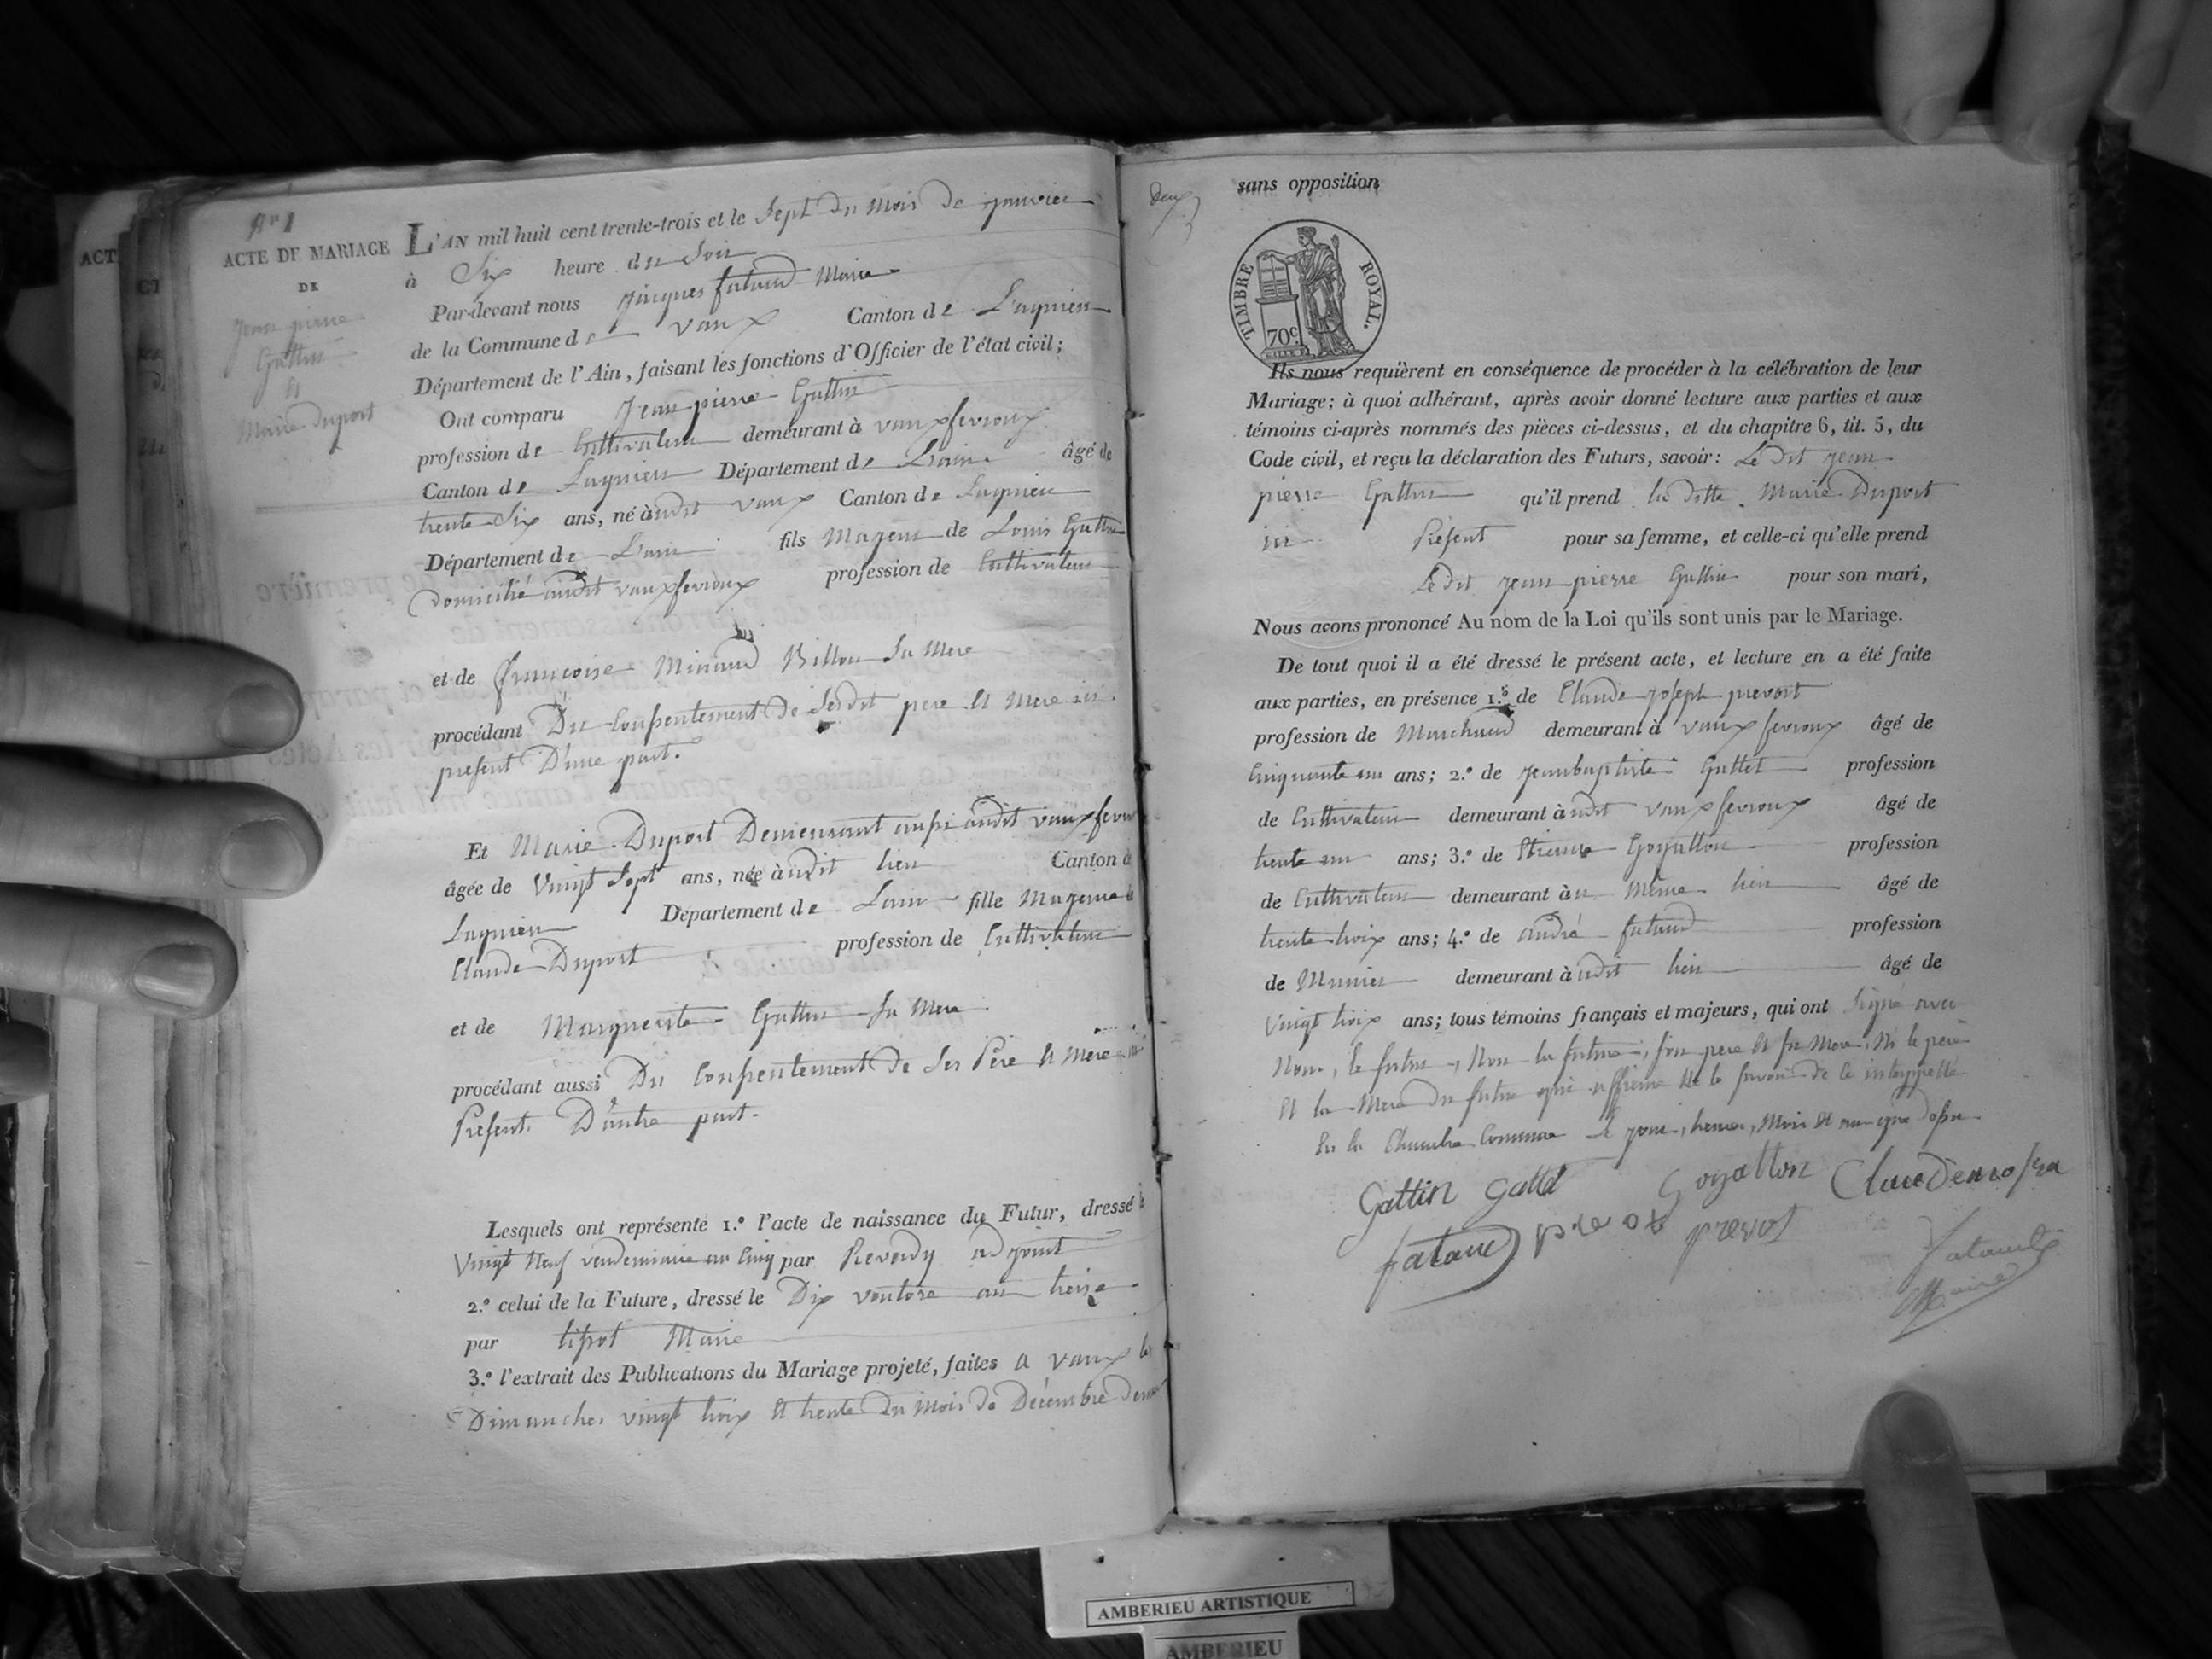 N° 1
ACTE DE MARIAGE
DE
Jean pierre
Guttin
et
Marie Duport
L'AN mil huit cent trente-trois et le Sept du mois de janvier
à Six heure du Soir
Par-devant nous Jacques fataud Maire
de la Commune de vaux Canton de Lagnieu
Département de l'Ain, faisant les fonctions d'Officier de l'état civil;
Ont comparu Jean pierre Guttin
profession de Cultivateur demeurant à vauxfevroux
Canton de Lagnieu Département de L'ain âgé de
trente Six ans, né àudit vaux Canton de Lagnieu
Département de L'ain fils Mageur de Louis Guttin
domicilié audit vauxfevroux profession de Cultivateur
et de françoise Minaud Billon Sa Mere
procédant Du Consentement de Sesdit pere et Mere ici
present D'une part.
Et Marie Duport Demeurant aussi audit vauxfevroux
âgée de Vingt Sept ans, née àudit lieu Canton de
Lagnieu Département de Lain fille Mageure de
Claude Duport profession de Cultivateur
et de Marguerite Guttin Sa Mere
procédant aussi Du Consentement de Ses Père et Mère ici
Présent. D'autre part.
Lesquels ont représenté 1.° l'acte de naissance du Futur, dressé le
Vingt Neuf vendemiaire an Cinq par Reverdy adjoint
2.° celui de la Future, dressé le Dix ventose an treize
par tissot Maire
3.° l'extrait des Publications du Mariage projeté, faites a vaux les
Dimanches vingt troix et trente du Mois de Décembre dernier
deux
sans opposition
TIMBRE ROYAL.
70 c
Ils nous requièrent en conséquence de procéder à la célébration de leur
Mariage; à quoi adhérant, après avoir donné lecture aux parties et aux
témoins ci-après nommés des pièces ci-dessus, et du chapitre 6, tit. 5, du
Code civil, et reçu la déclaration des Futurs, savoir: Le dit jean
pierre Guttin qu'il prend la ditte Marie Duport
ici Présent pour sa femme, et celle-ci qu'elle prend
Ledit jean pierre Guttin pour son mari,
Nous avons prononcé Au nom de la Loi qu'ils sont unis par le Mariage.
De tout quoi il a été dressé le présent acte, et lecture en a été faite
aux parties, en présence 1.° de Claude joseph prevost
profession de Marchand demeurant à vaux fevroux âgé de
Cinquante un ans; 2.° de jeanbaptiste Guttet profession
de Cultivateur demeurant àudit vauxfevroux âgé de
trente un ans; 3.° de Etienne Goyatton profession
de Cultivateur demeurant àu Même lieu âgé de
trente troix ans; 4.° de andré fataud profession
de Munier demeurant àudit lieu âgé de
Vingt troix ans; tous témoins français et majeurs, qui ont Signé avec
Nous, le futur, Non la future, son pere et sa Mere, Ni le père
et la Mere du futur qui affirme Ne le savoir de ce interpellé
En la Chambre Commune le jour, heure, Mois et an que dessu
Gattin Gattet Goyatton
fataud prevot prevost
fataud
Maire